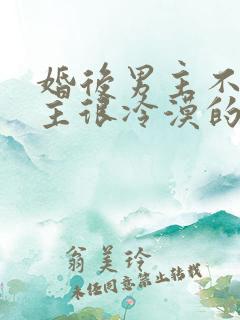 婚後男主不
主很冷漠的
翁美玲
未经同意禁止转载